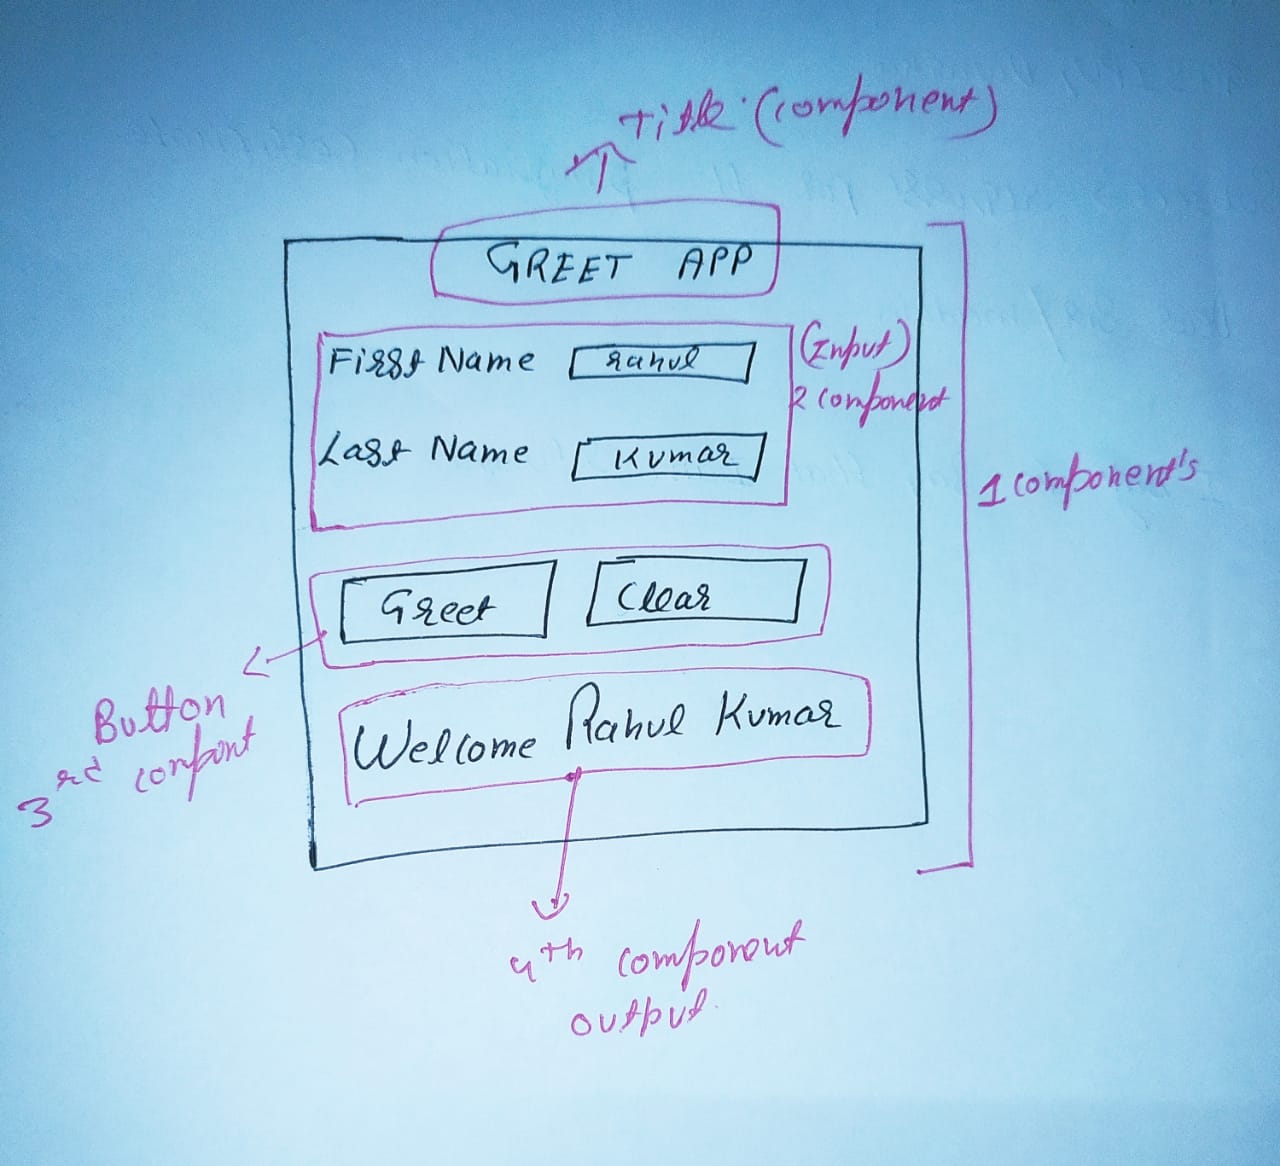 Title (component)
GREET APP
First Name Rahul
(Input)
2 component
Last Name Kumar
1 component's
Greet Clear
Button
3rd compont
Welcome Rahul Kumar
4th component
output